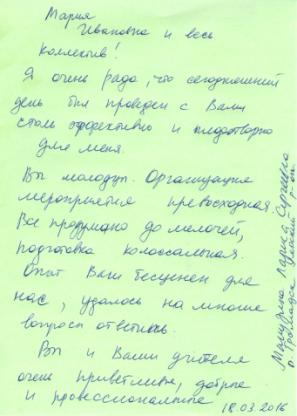 Мария
Ивановна и весь
коллектив!
Я очень рада, что сегодняшний
день был проведен с Вами
столь эффективно и плодотворно
для меня.
Вы молодцы. Организация
мероприятия превосходная.
Все продумано до мелочей,
подготовка колоссальная.
Опыт Ваш бесценен для
нас, удалось на многие
вопросы ответить.
Вы и Ваши учителя
очень приветливы, добрые
и профессиональные
18.03.2016
Лариса Сергеевна